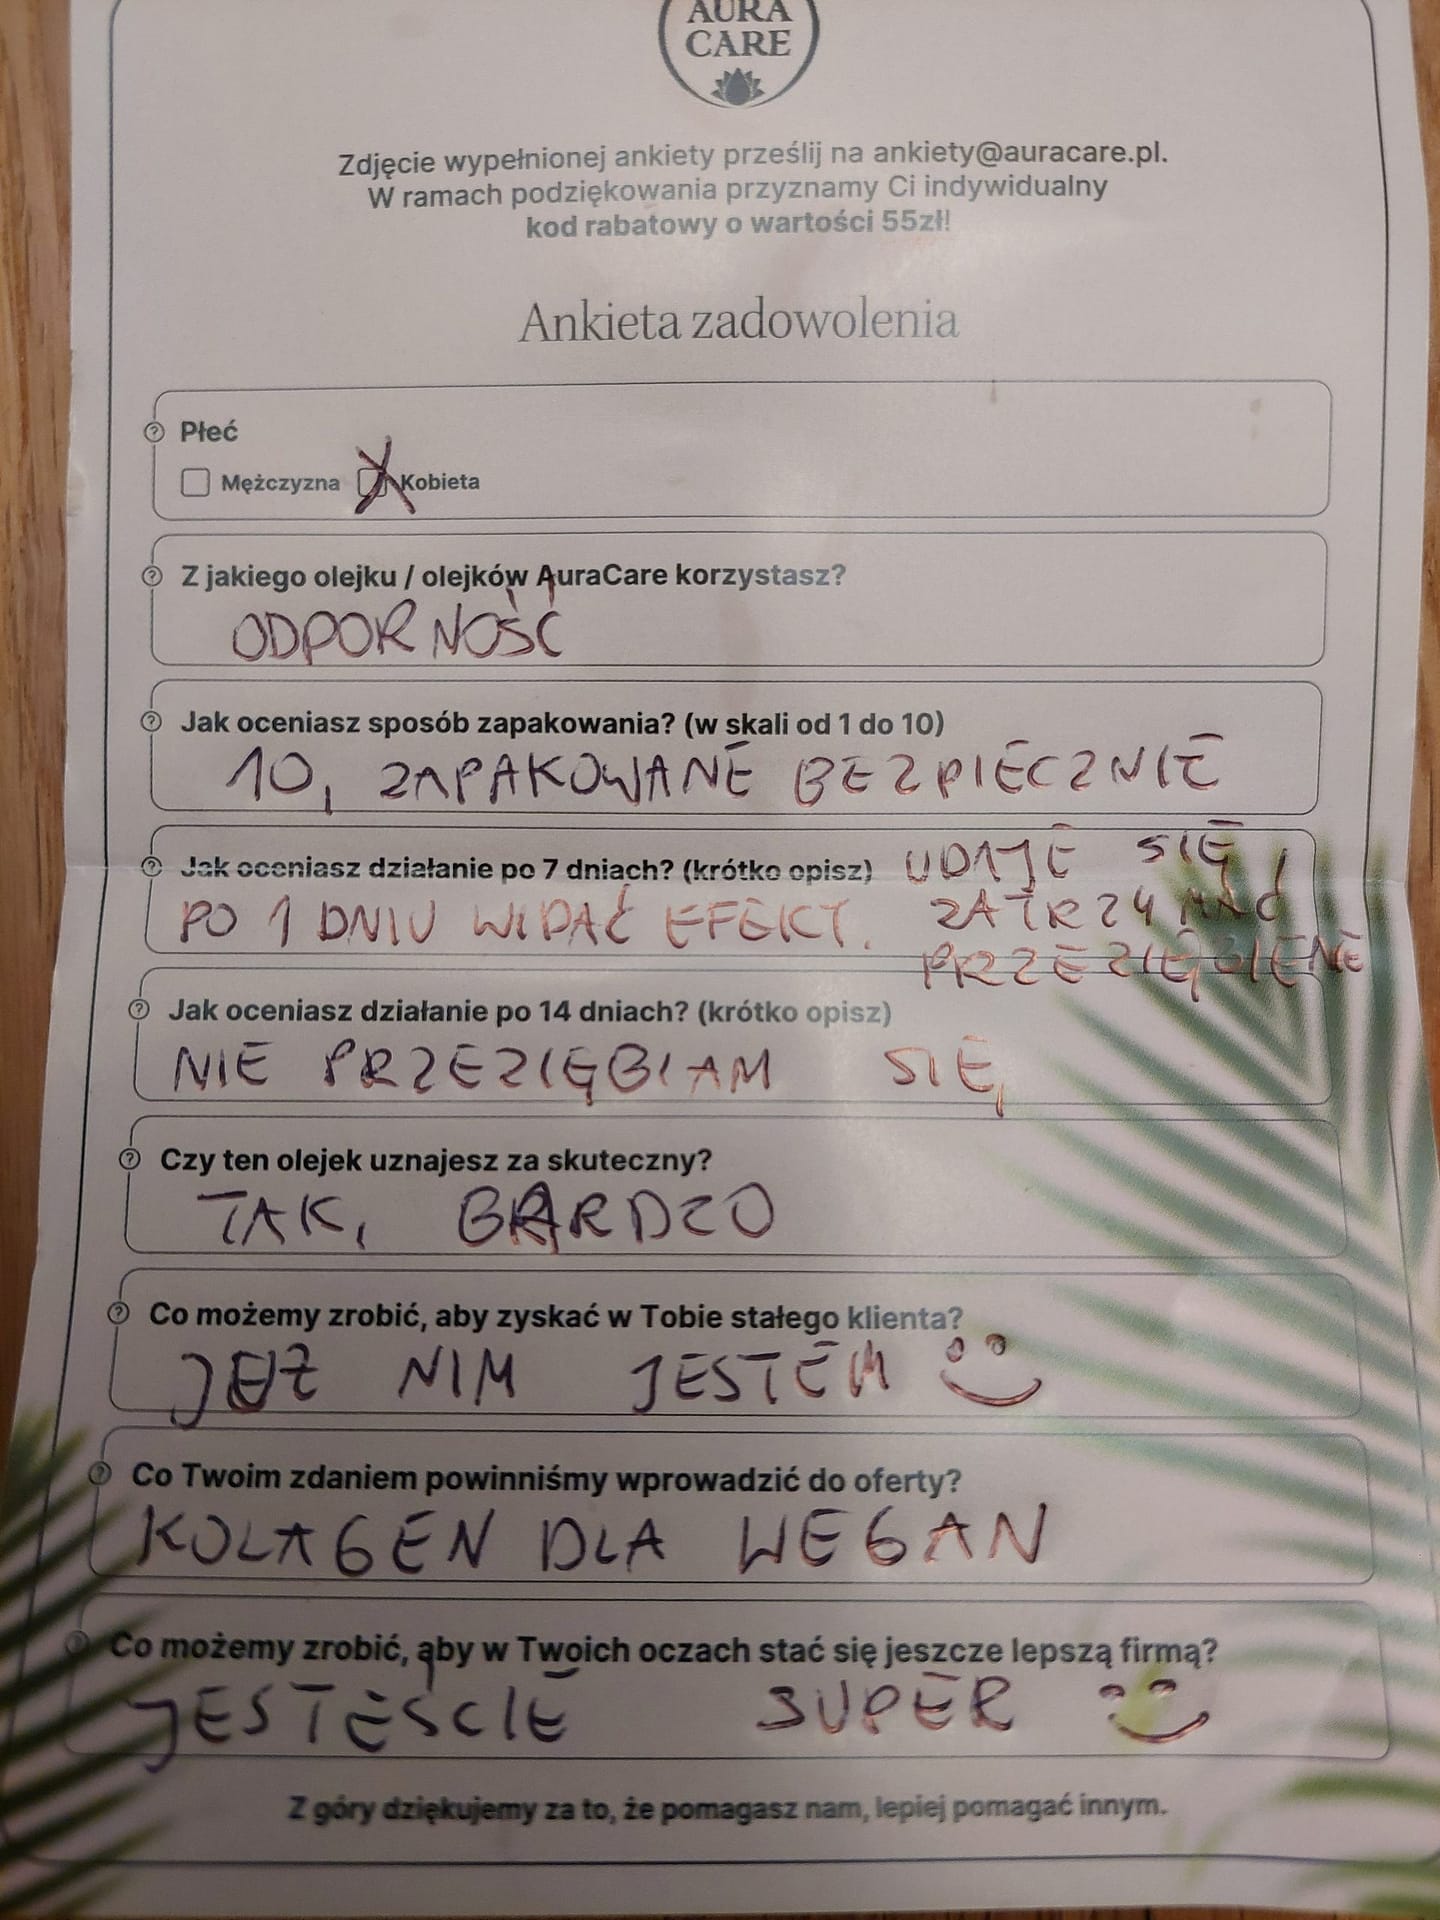 AURA
CARE
Zdjęcie wypełnionej ankiety prześlij na ankiety@auracare.pl.
W ramach podziękowania przyznamy Ci indywidualny
kod rabatowy o wartości 55zł!
Ankieta zadowolenia
Płeć
Mężczyzna X Kobieta
Z jakiego olejku / olejków AuraCare korzystasz?
ODPORNOŚĆ
Jak oceniasz sposób zapakowania? (w skali od 1 do 10)
10, ZAPAKOWANE BEZPIECZNIE
Jak oceniasz działanie po 7 dniach? (krótko opisz)
PO 1 DNIU WIDAĆ EFEKT.
UDAJE SIĘ
ZATRZYMAĆ
PRZEZIĘBIENE
Jak oceniasz działanie po 14 dniach? (krótko opisz)
NIE PRZEZIĘBIAM SIĘ
Czy ten olejek uznajesz za skuteczny?
TAK, BARDZO
Co możemy zrobić, aby zyskać w Tobie stałego klienta?
NIM JESTEM
Co Twoim zdaniem powinniśmy wprowadzić do oferty?
KOLAGEN DLA WEGAN
Co możemy zrobić, aby w Twoich oczach stać się jeszcze lepszą firmą?
JESTEŚCIE SUPER
Z góry dziękujemy za to, że pomagasz nam, lepiej pomagać innym.